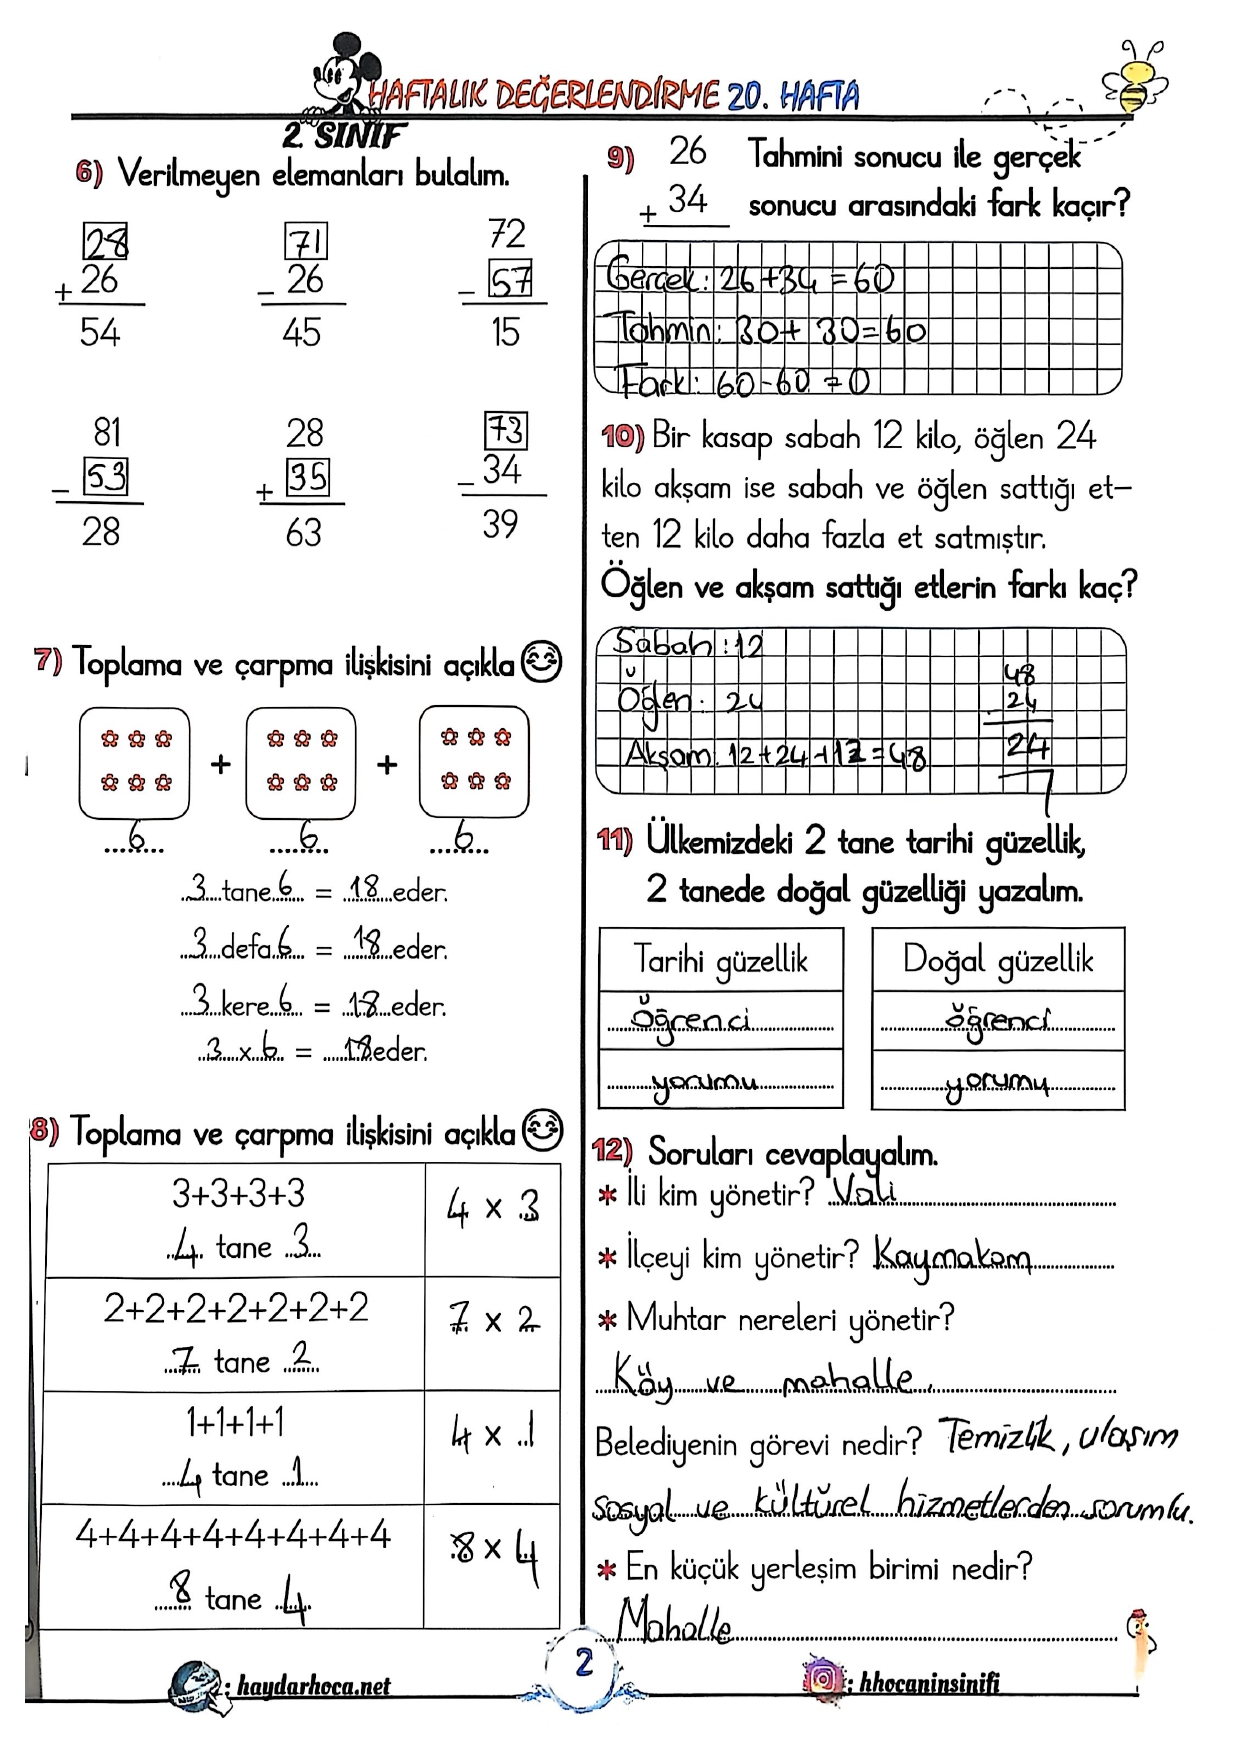 HAFTALIK DEĞERLENDİRME 20. HAFTA
2. SINIF
6) Verilmeyen elemanları bulalım.
28
+ 26
54
71
- 26
45
72
- 57
15
81
- 53
28
28
+ 35
63
73
- 34
39
7) Toplama ve çarpma ilişkisini açıkla
+ +
...6... ...6... ...6...
3 tane 6 = 18 eder.
3 defa 6 = 18 eder.
3 kere 6 = 18 eder.
3 x 6 = 18 eder.
8) Toplama ve çarpma ilişkisini açıkla
3+3+3+3
4 tane 3
4 x 3
2+2+2+2+2+2+2
7 tane 2
7 x 2
1+1+1+1
4 tane 1
4 x 1
4+4+4+4+4+4+4+4
8 tane 4
8 x 4
9) 26 Tahmini sonucu ile gerçek
+ 34 sonucu arasındaki fark kaçır?
Gerçek: 26+34 = 60
Tahmin: 30+ 30=60
Farkı: 60-60 = 0
10) Bir kasap sabah 12 kilo, öğlen 24
kilo akşam ise sabah ve öğlen sattığı et-
ten 12 kilo daha fazla et satmıştır.
Öğlen ve akşam sattığı etlerin farkı kaç?
Sabah: 12
Öğlen: 24
Akşam: 12+24+12=48
48
- 24
24
11) Ülkemizdeki 2 tane tarihi güzellik,
2 tanede doğal güzelliği yazalım.
Tarihi güzellik
Öğrenci
yorumu
Doğal güzellik
öğrenci
yorumu
12) Soruları cevaplayalım.
* İli kim yönetir? Vali
* İlçeyi kim yönetir? Kaymakam
* Muhtar nereleri yönetir?
Köy ve mahalle.
Belediyenin görevi nedir? Temizlik, ulaşım
sosyal ve kültürel hizmetlerden sorumlu.
* En küçük yerleşim birimi nedir?
Mahalle
2
: haydarhoca.net
: hhocaninsinifi